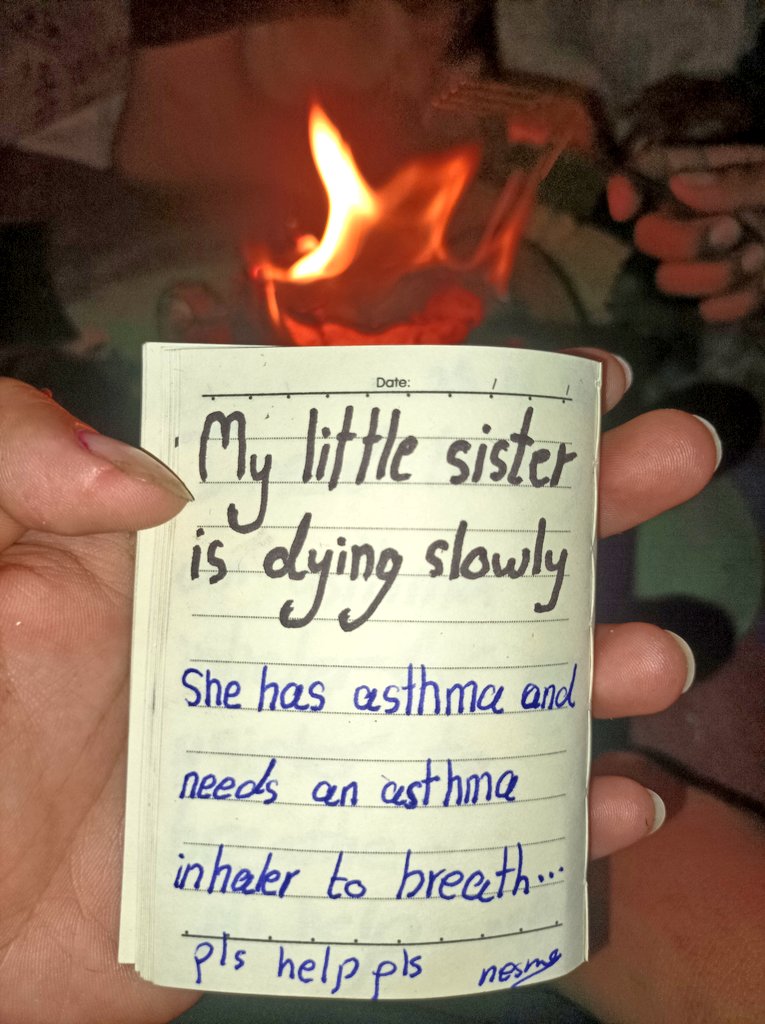 Date: / /
My little sister
is dying slowly
She has asthma and
needs an asthma
inhaler to breath...
pls help pls nesme